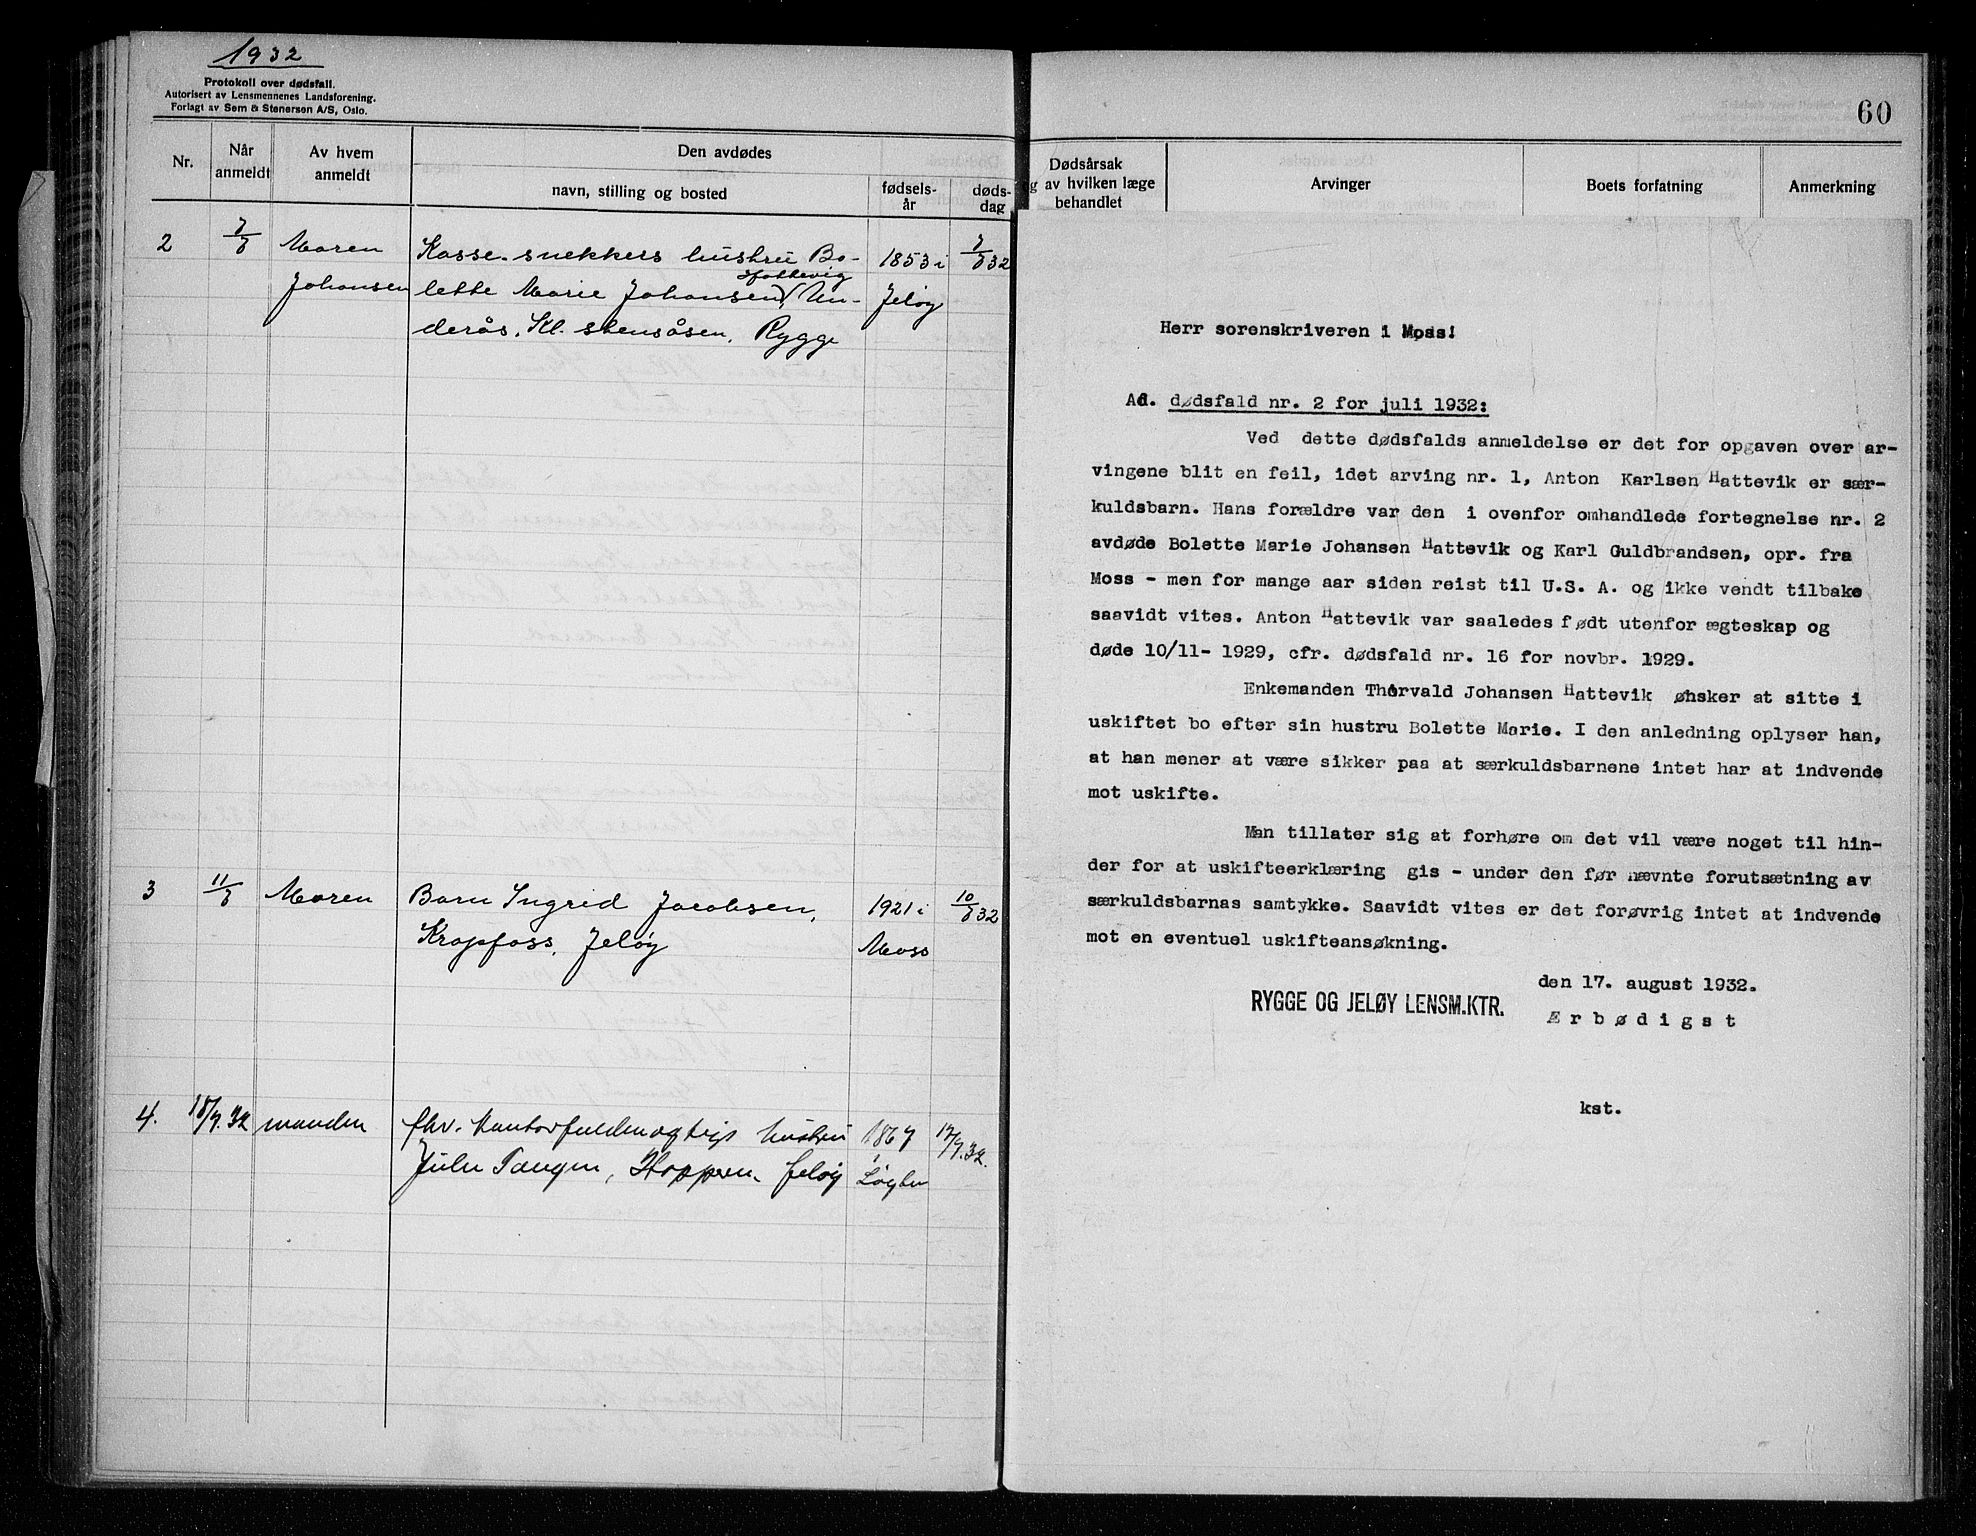 1932
Protokoll over dødsfall.
Autorisert av Lensmennenes Landsforening.
Forlagt av Sem & Stenersen A/S, Oslo.
Nr.
Når anmeldt
Av hvem anmeldt
Den avdødes
navn, stilling og bosted
fødsels-år
døds-dag
2 7/8 Maren Kasse.snekkers hustru Bo- 1853 i 7/8 32
Hattevig
Johansen lette Marie Johansen, Un- Jeløy
derås. Kl. stensåsen, Rygge
3 11/8 Maren Barn Ingrid Jacobsen, 1921 i 10/8 32
Krapfoss, Jeløy Moss
4. 18/7.32 manden fhv. Kontorfuldmægtigs hustru 1867 17/7.32.
Julie Tangen, Hoppern. Jeløy i Løyten
60
Dødsårsak
g av hvilken læge
behandlet
Arvinger
Boets forfatning
Anmerkning
Herr sorenskriveren i Moss!
Ad. dødsfald nr. 2 for juli 1932:
Ved dette dødsfalds anmeldelse er det for opgaven over ar-
vingene blit en feil, idet arving nr. 1, Anton Karlsen Hattevik er sær-
kuldsbarn. Hans forældre var den i ovenfor omhandlede fortegnelse nr. 2
avdøde Bolette Marie Johansen Hattevik og Karl Guldbrandsen, opr. fra
Moss - men for mange aar siden reist til U.S. A. og ikke vendt tilbake
saavidt vites. Anton Hattevik var saaledes født utenfor ægteskap og
døde 10/11- 1929, cfr. dødsfald nr. 16 for novbr. 1929.
Enkemanden Thorvald Johansen Hattevik ønsker at sitte i
uskiftet bo efter sin hustru Bolette Marie. I den anledning oplyser han,
at han mener at være sikker paa at særkuldsbarnene intet har at indvende
mot uskifte.
Man tillater sig at forhøre om det vil være noget til hin-
der for at uskifteerklæring gis - under den før nævnte forutsætning av
særkuldsbarnas samtykke. Saavidt vites er det forøvrig intet at indvende
mot en eventuel uskifteansøkning.
den 17. august 1932.
RYGGE OG JELØY LENSM.KTR.
Ærbødigst
kst.